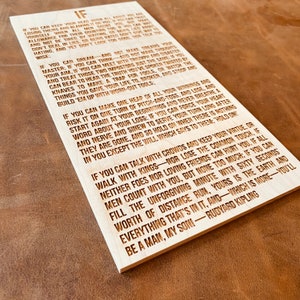 IF
IF YOU CAN KEEP YOUR HEAD WHEN ALL ABOUT YOU ARE
LOSING THEIRS AND BLAMING IT ON YOU, IF YOU CAN TRUST
YOURSELF WHEN ALL MEN DOUBT YOU, BUT MAKE
ALLOWANCE FOR THEIR DOUBTING TOO; IF YOU CAN WAIT
AND NOT BE TIRED BY WAITING, OR BEING LIED ABOUT,
DON'T DEAL IN LIES, OR BEING HATED, DON'T GIVE WAY TO
HATING, AND YET DON'T LOOK TOO GOOD, NOR TALK TOO
WISE.
IF YOU CAN DREAM—AND NOT MAKE DREAMS YOUR
MASTER; IF YOU CAN THINK—AND NOT MAKE THOUGHTS
YOUR AIM; IF YOU CAN MEET WITH TRIUMPH AND DISASTER
AND TREAT THOSE TWO IMPOSTORS JUST THE SAME; IF YOU
CAN BEAR TO HEAR THE TRUTH YOU'VE SPOKEN TWISTED BY
KNAVES TO MAKE A TRAP FOR FOOLS, OR WATCH THE
THINGS YOU GAVE YOUR LIFE TO, BROKEN, AND STOOP AND
BUILD 'EM UP WITH WORN-OUT TOOLS.
IF YOU CAN MAKE ONE HEAP OF ALL YOUR WINNINGS AND
RISK IT ON ONE TURN OF PITCH-AND-TOSS, AND LOSE, AND
START AGAIN AT YOUR BEGINNINGS AND NEVER BREATHE A
WORD ABOUT YOUR LOSS; IF YOU CAN FORCE YOUR HEART
AND NERVE AND SINEW TO SERVE YOUR TURN LONG AFTER
THEY ARE GONE, AND SO HOLD ON WHEN THERE IS NOTHING
IN YOU EXCEPT THE WILL WHICH SAYS TO THEM: "HOLD ON!"
IF YOU CAN TALK WITH CROWDS AND KEEP YOUR VIRTUE, OR
WALK WITH KINGS—NOR LOSE THE COMMON TOUCH, IF
NEITHER FOES NOR LOVING FRIENDS CAN HURT YOU, IF ALL
MEN COUNT WITH YOU, BUT NONE TOO MUCH; IF YOU CAN
FILL THE UNFORGIVING MINUTE WITH SIXTY SECONDS'
WORTH OF DISTANCE RUN, YOURS IS THE EARTH AND
EVERYTHING THAT'S IN IT, AND—WHICH IS MORE—YOU'LL
BE A MAN, MY SON! — RUDYARD KIPLING